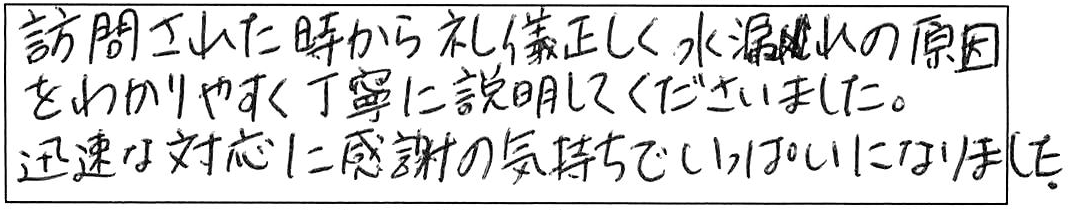 訪問された時から礼儀正しく水漏れの原因
をわかりやすく丁寧に説明してくださいました。
迅速な対応に感謝の気持ちでいっぱいになりました。